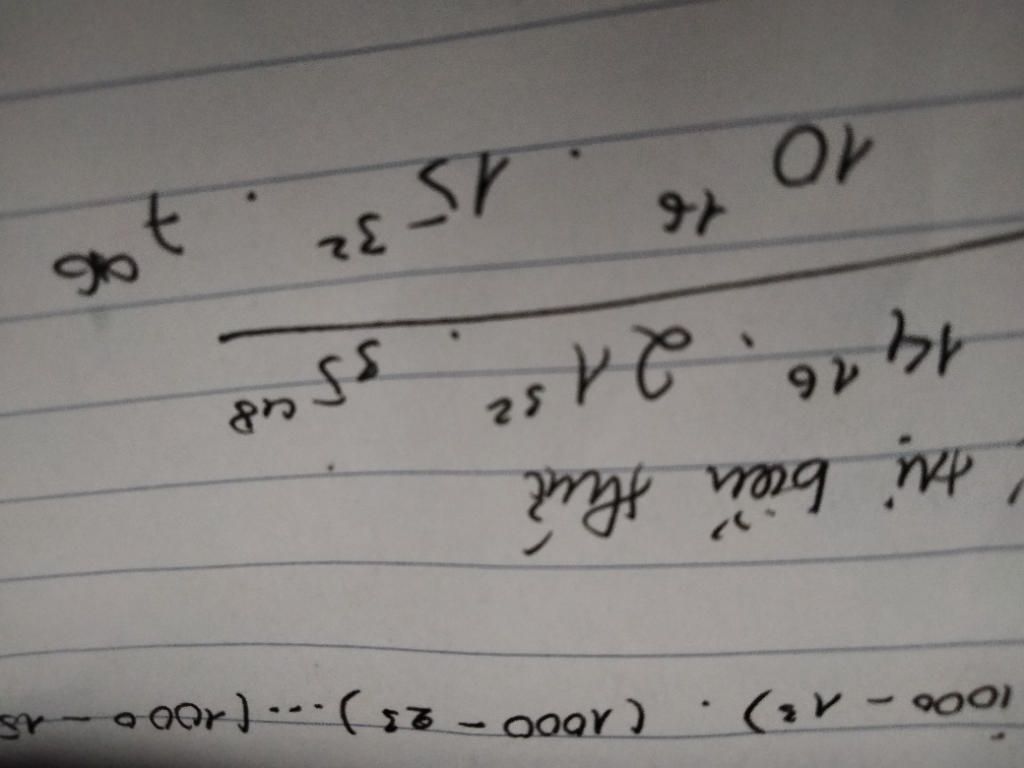 1000 - 1³) . (1000 - 2³) ... (1000 - 15
trị biểu thức
14¹⁶ . 21³² . 35⁴⁸
10¹⁶ . 15³² . 7⁹⁶